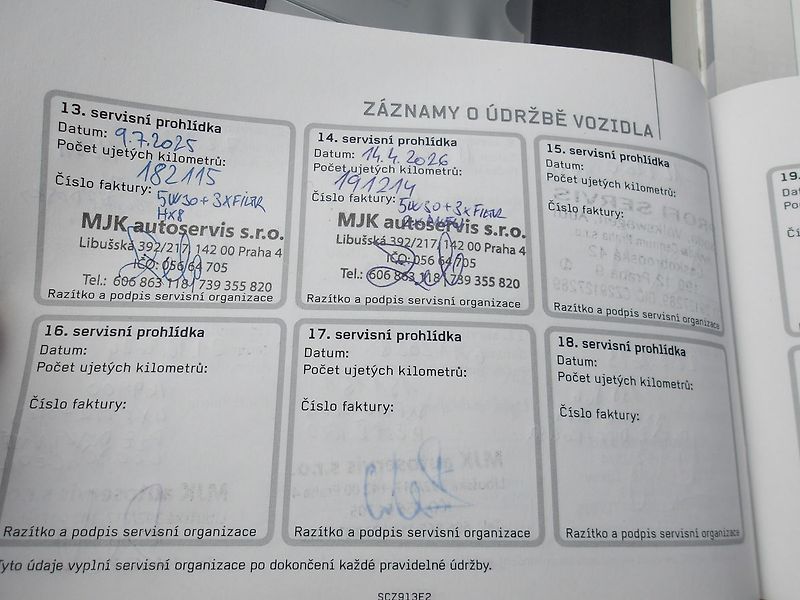 ZÁZNAMY O ÚDRŽBĚ VOZIDLA
13. servisní prohlídka
Datum: 9.7.2025
Počet ujetých kilometrů:
182115
Číslo faktury: 5W30+3xFILTR
Hx8
MJK autoservis s.r.o.
Libušská 392/217, 142 00 Praha 4
IČO: 056 64 705
Tel.: 606 863 118, 739 355 820
Razítko a podpis servisní organizace
14. servisní prohlídka
Datum: 14.4.2026
Počet ujetých kilometrů:
191214
Číslo faktury: 5W30+3xFILTR
MJK autoservis s.r.o.
Libušská 392/217, 142 00 Praha 4
IČO: 056 64 705
Tel.: 606 863 118, 739 355 820
Razítko a podpis servisní organizace
15. servisní prohlídka
Datum:
Počet ujetých kilometrů:
Číslo faktury:
Razítko a podpis servisní organizace
16. servisní prohlídka
Datum:
Počet ujetých kilometrů:
Číslo faktury:
Razítko a podpis servisní organizace
17. servisní prohlídka
Datum:
Počet ujetých kilometrů:
Číslo faktury:
Razítko a podpis servisní organizace
18. servisní prohlídka
Datum:
Počet ujetých kilometrů:
Číslo faktury:
Razítko a podpis servisní organizace
Tyto údaje vyplní servisní organizace po dokončení každé pravidelné údržby.
SCZ913E2
19.